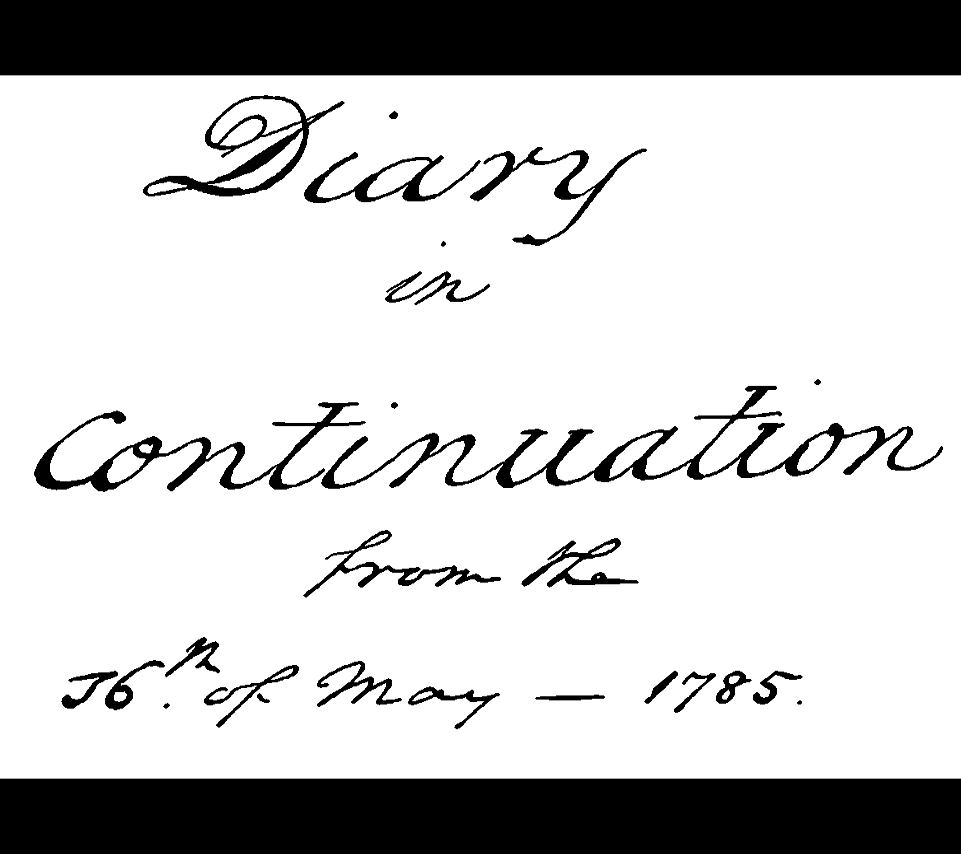 Diary
in
Continuation
from the
16.th of May — 1785.